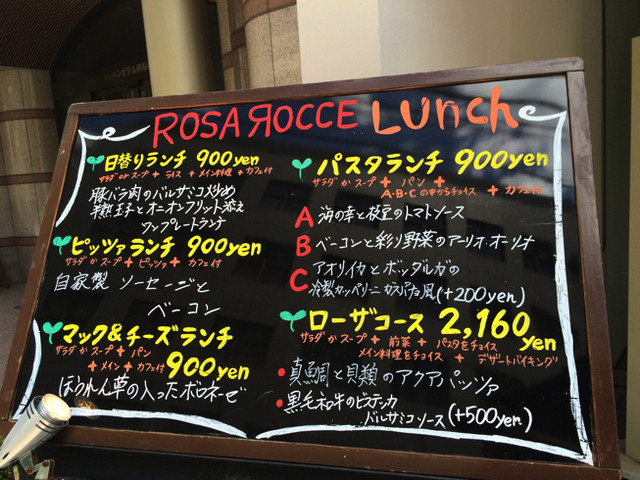 ROSA ROCCE Lunch
日替りランチ 900yen
サラダorスープ + ライス + メイン料理 + カフェ付
豚バラ肉のバルサミコ炒め
半熟玉子とオニオンフリット添え
ワンプレートランチ
ピッツァランチ 900yen
サラダかスープ + ピッツァ + カフェ付
自家製 ソーセージと
ベーコン
マック&チーズランチ
サラダかスープ + パン
+ メイン + カフェ付 900yen
ほうれん草の入ったボロネーゼ
パスタランチ 900yen
サラダかスープ + パン +
A・B・Cの中からチョイス + カフェ付
A 海の幸と枝豆のトマトソース
B ベーコンと彩り野菜のアーリオ・オーリオ
C アオリイカとボッタルガの
冷製カッペリーニ ガスパチョ風(+200yen)
ローザコース 2,160yen
サラダかスープ + 前菜 + パスタをチョイス
メイン料理をチョイス + デザートバイキング
・真鯛と貝類のアクアパッツァ
・黒毛和牛のビステッカ
バルサミコソース(+500yen)